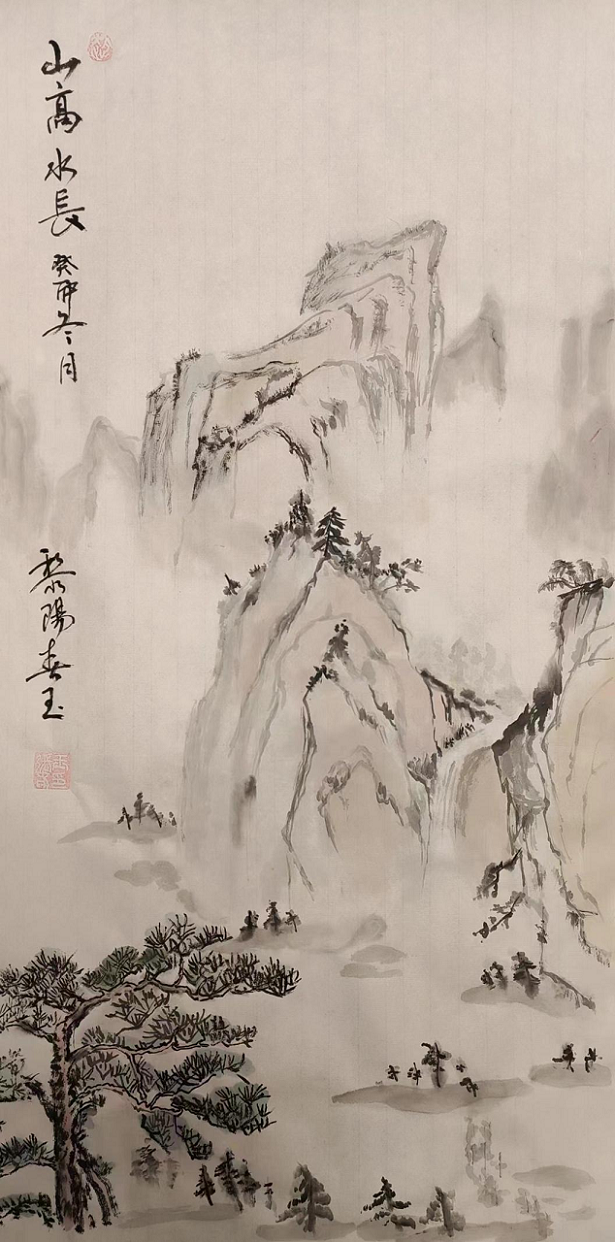 山高水長 癸卯冬月
黎陽春玉